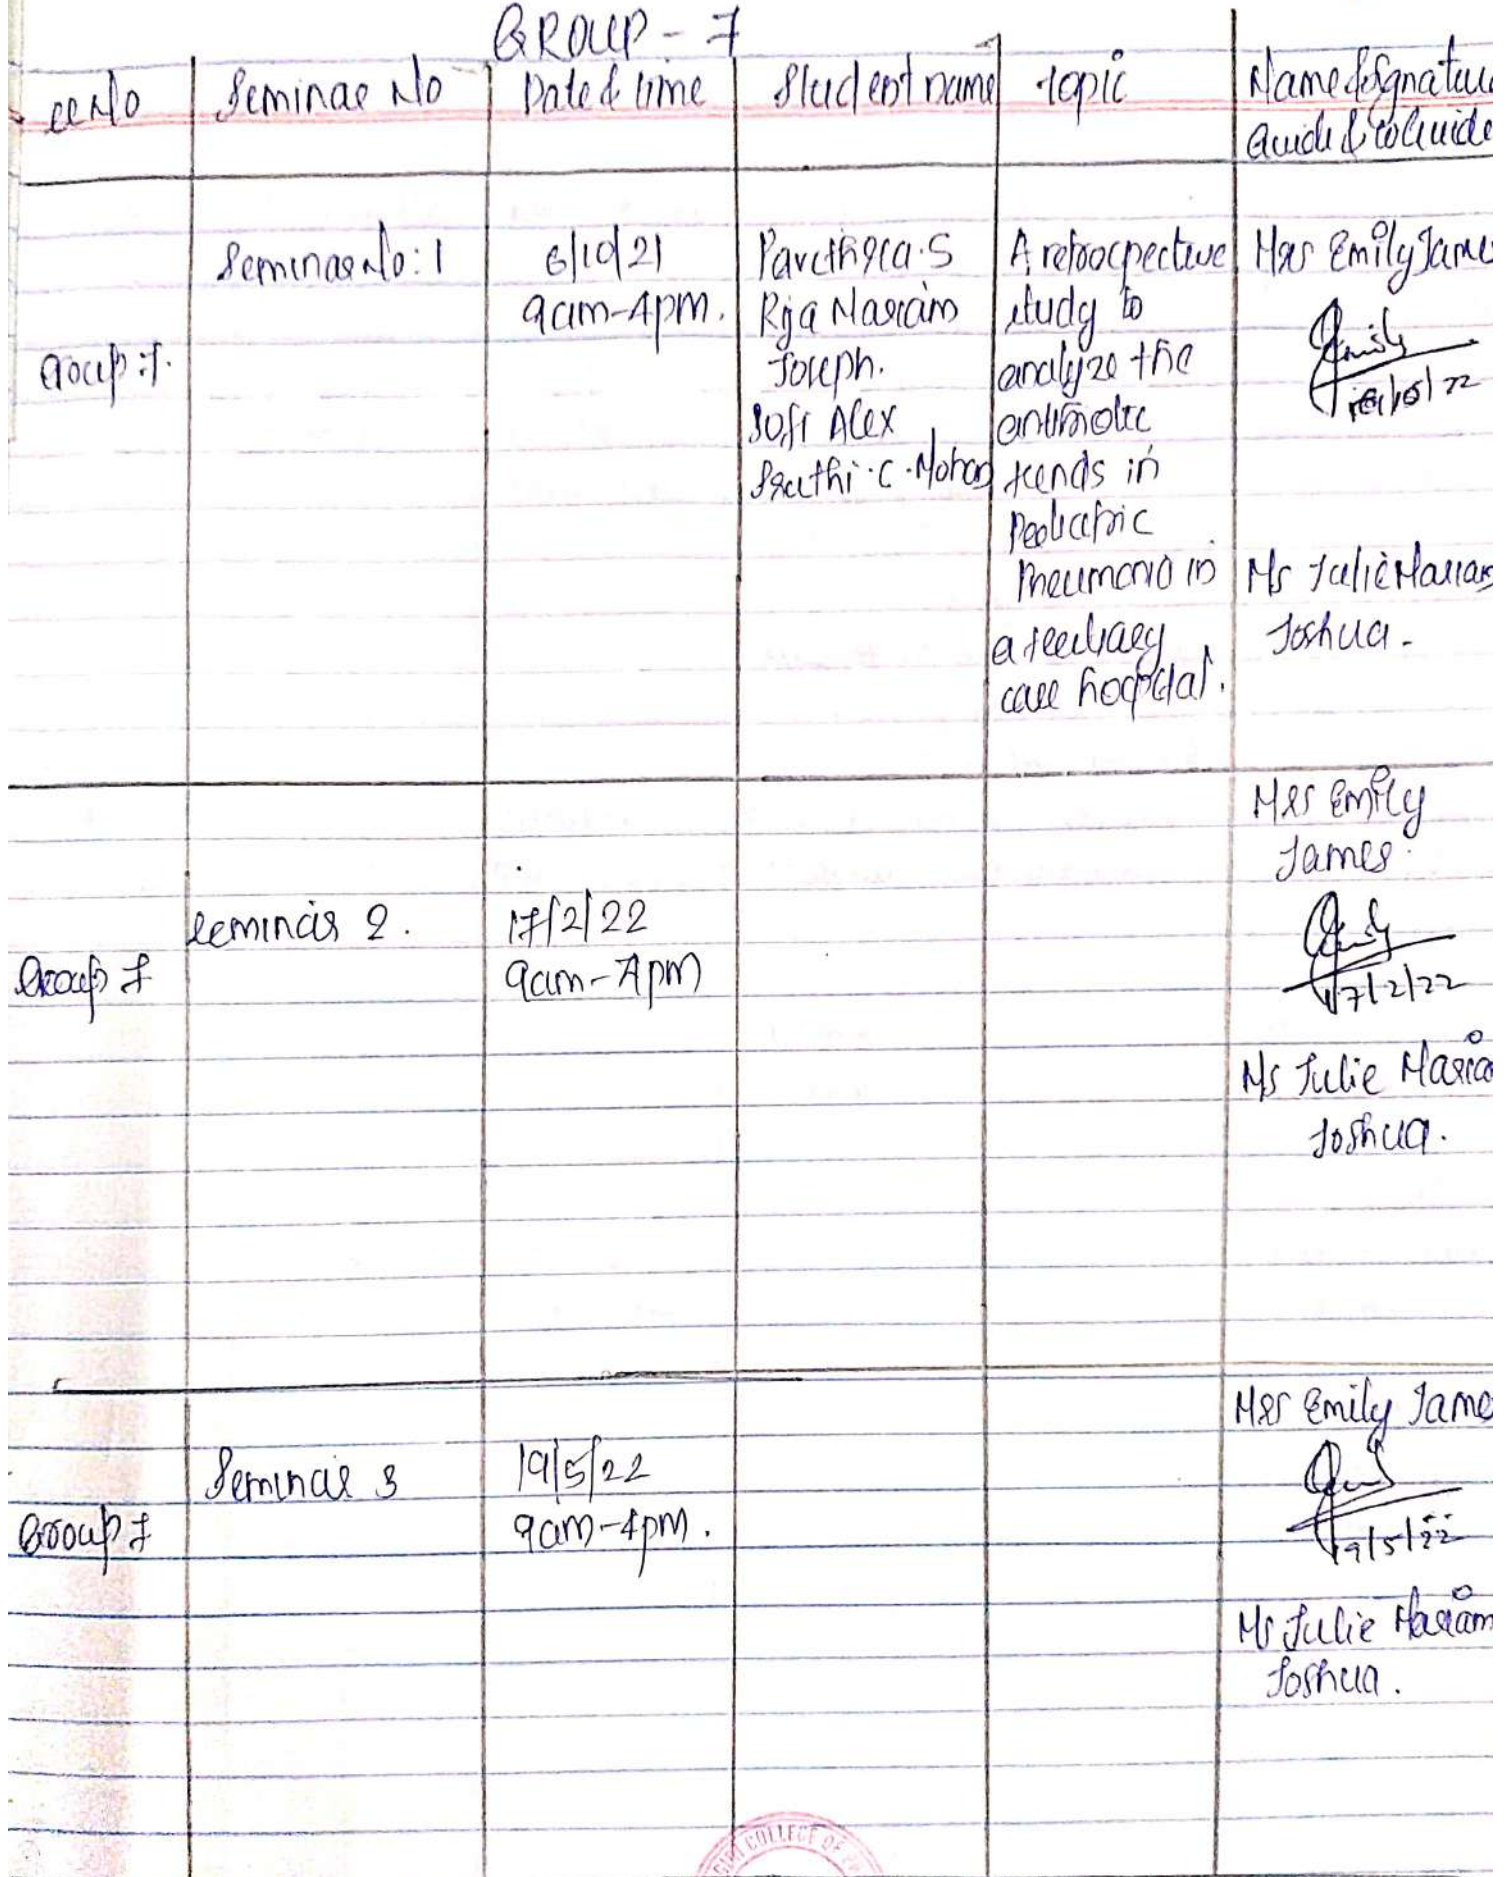 GROUP - 7
Seminar No
Date & time
Student name
topic
Name & Signature
Guide & coGuide
Seminar No: 1
6/10/21
9am-4pm.
Parvathy
Rija Mariam
Joseph.
Sofi Alex
Sruthi.C.Mohan
A retrocpective
study to
analyze the
antibiotic
trends in
Pediatric
Pneumonia in
a tertiary
care hospital.
Mrs Emily James
Ms Julie Mariam
Joshua.
Group 7.
Seminar 2.
17/2/22
9am-4pm
Mrs Emily
James.
17/2/22
Ms Julie Mariam
Joshua.
Group 7
Seminar 3
19/5/22
9am-4pm.
Mrs Emily Jame
19/5/22
Ms Julie Mariam
Joshua.
Group 7
COLLEGE OF